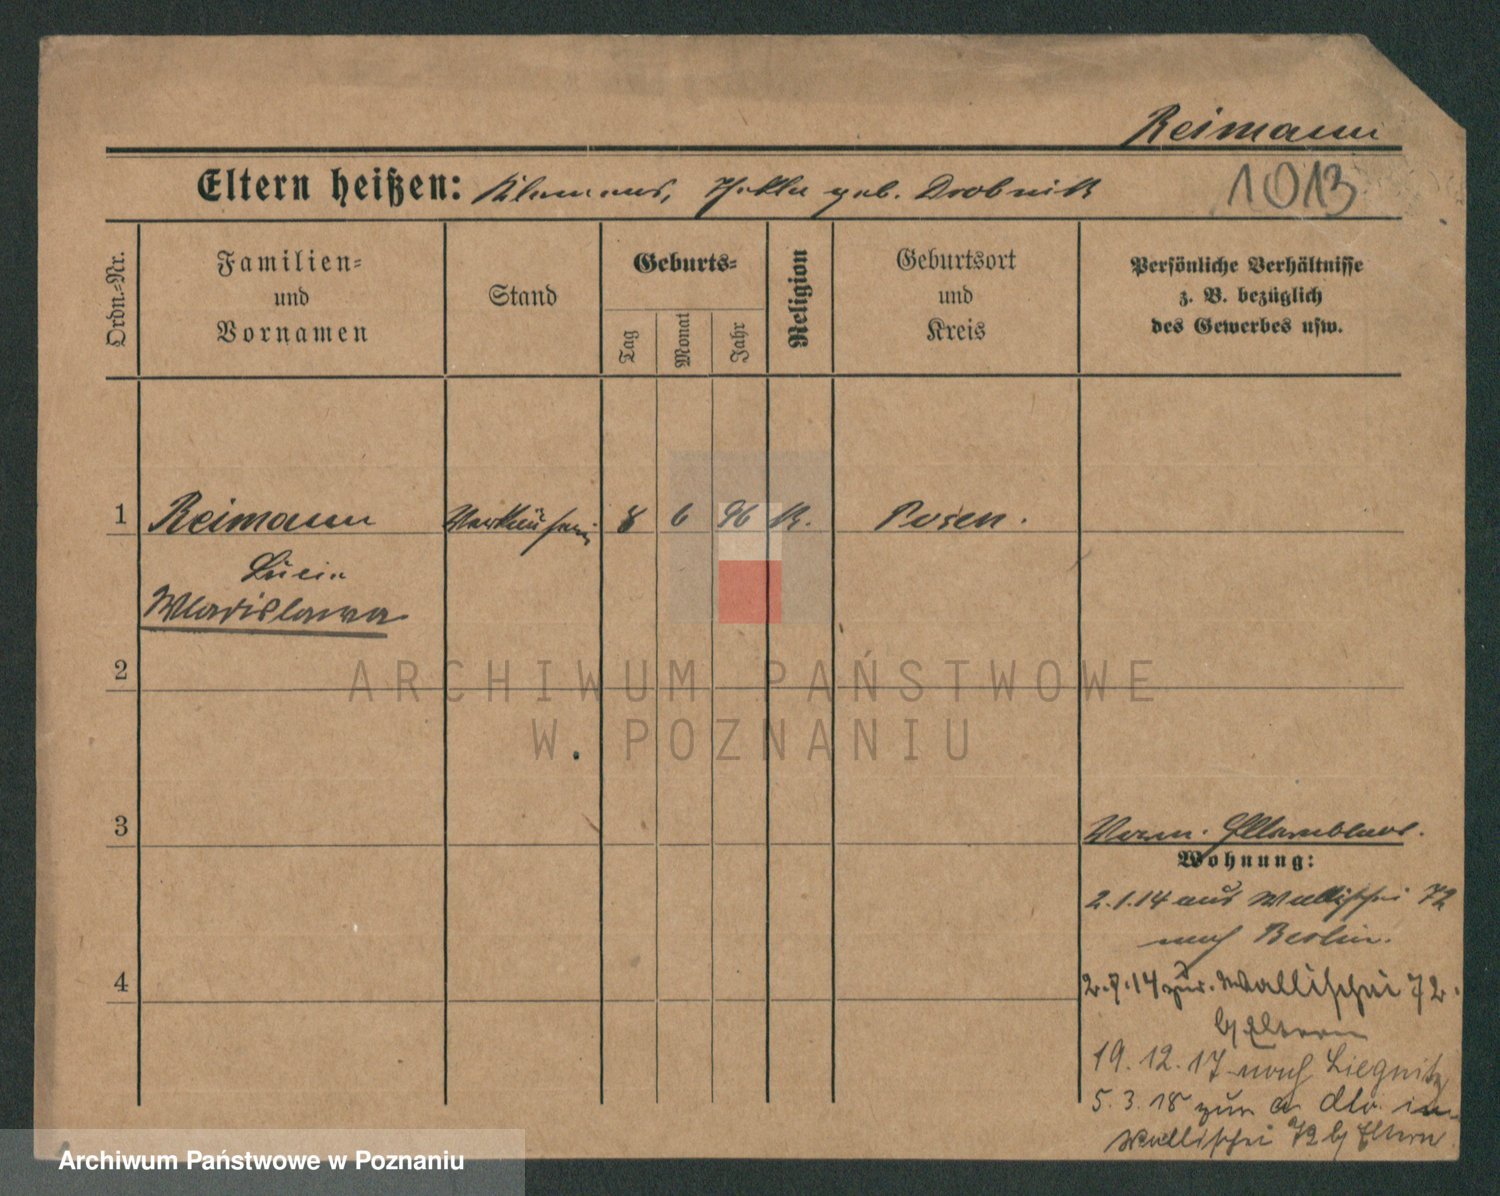 Reimann
Eltern heißen: Klemens, Thekla geb. Drobnik
1013
Ordn.-Nr.
Familien-
und
Vornamen
Stand
Geburts-
Tag
Monat
Jahr
Religion
Geburtsort
und
Kreis
Persönliche Verhältnisse
z. B. bezüglich
des Gewerbes usw.
1 Reimann Verkäuferin 8 6 96 K. Posen.
Lucia
Wladislawa
2
3
Verm. Elternblatt.
Wohnung:
2.1.14 aus Wallischei 72
nach Berlin.
4
2.9.14 zur. Wallischei 72.
b/ Eltern
19.12.17 nach Liegnitz
5.3.18 zur a dto. in
Wallischei 72 b/ Eltern
ARCHIWUM PAŃSTWOWE
W POZNANIU
Archiwum Państwowe w Poznaniu